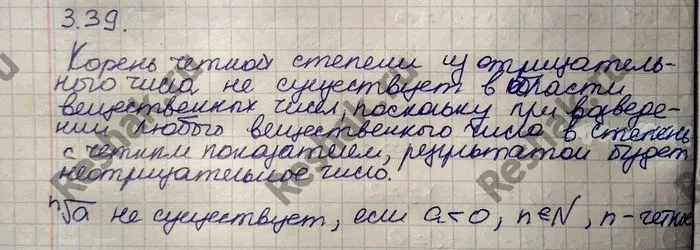 3.39.
Корень четной степени из отрицатель-
ного числа не существует в области
вещественных чисел, поскольку при возведе-
нии любого вещественного числа в степень
с четным показателем, результатом будет
неотрицательное число.
ⁿ√a не существует, если a < 0, n ∈ N, n - четное
Reshak.ru